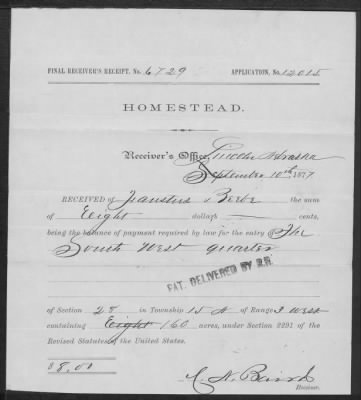 FINAL RECEIVER'S RECEIPT, No. 6729 APPLICATION, No. 12015
HOMESTEAD.
Receiver's Office, Lincoln Nebraska
September 10th 1877
RECEIVED of the sum
of Eight dollars cents,
being the balance of payment required by law for the entry of The
South West quarter
PAT. DELIVERED BY
of Section 28 in Township 15 N of Range 3 West
containing 160 acres, under Section 2291 of the
Revised Statutes of the United States.
$8.00
Receiver.